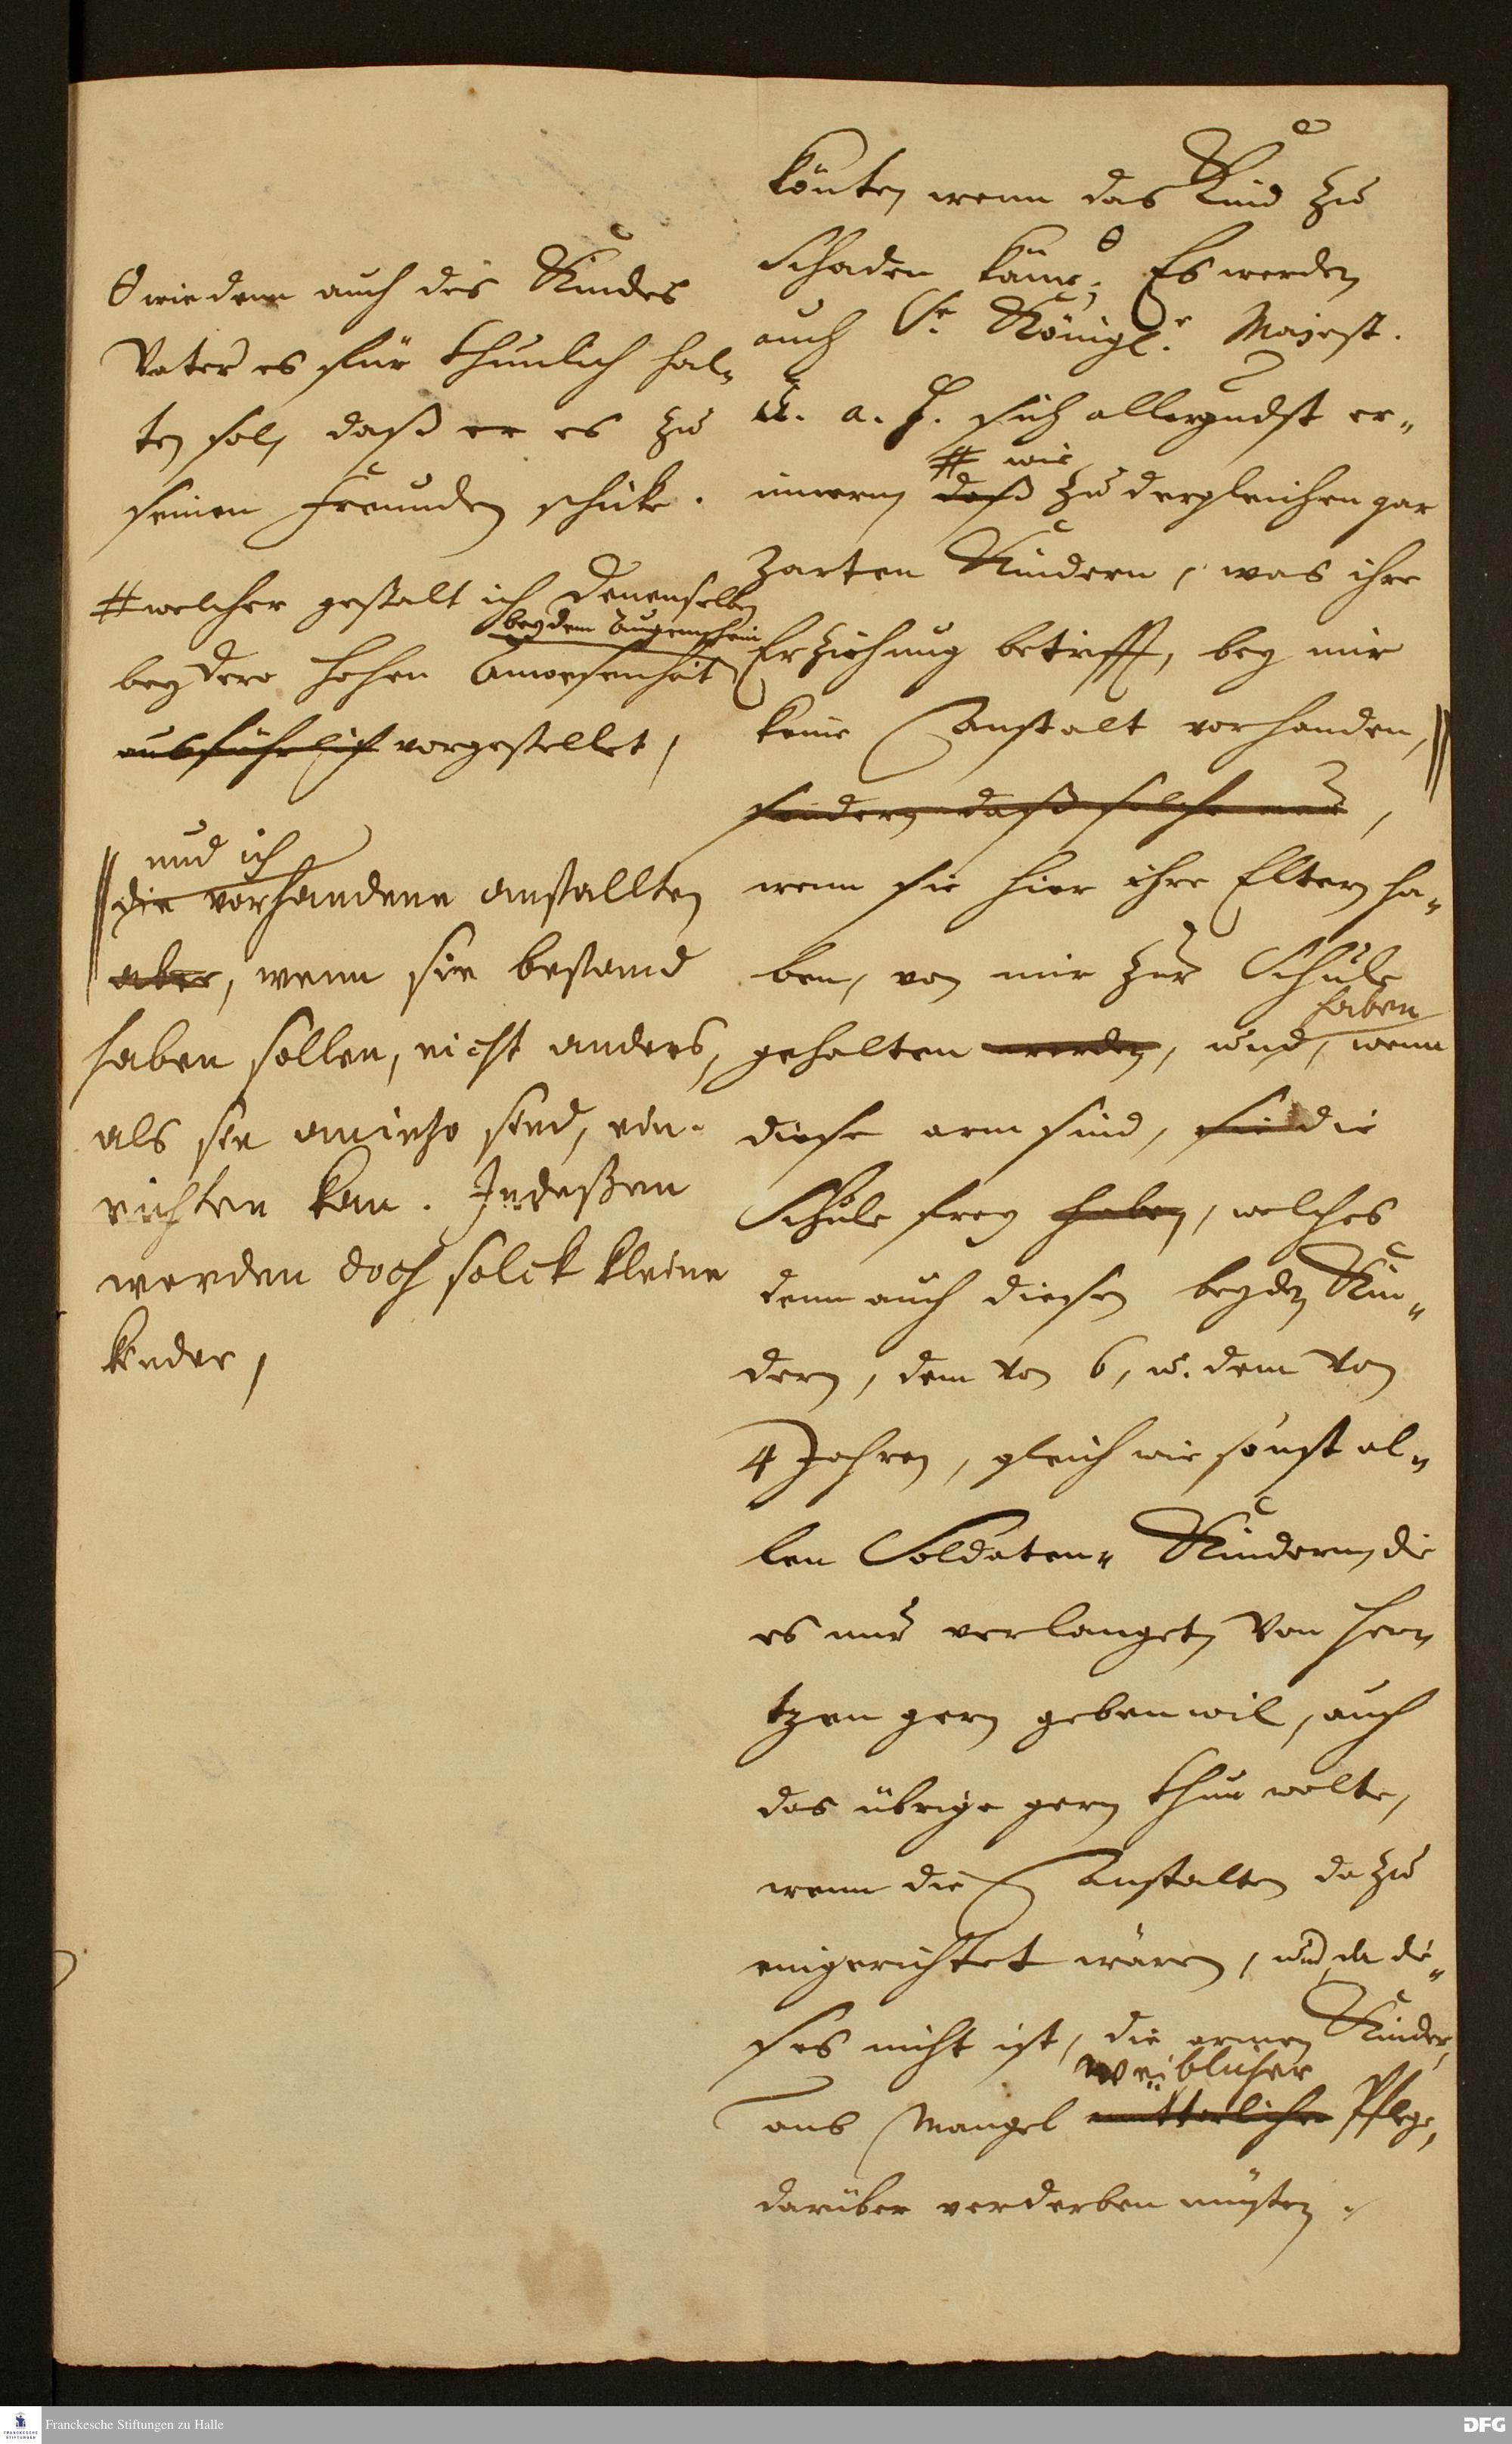 könten, wenn das Kind zu
Schaden käme; Es werden
auch Se Königle Majest.
U. a. H. sich allergndst er-
# wie
innern daß zu dergleichen gar
zarten Kindern, was ihre
Erziehung betrifft, bey mir
keine Anstalt vorhanden,
sondern daß solche nur,
wenn sie hier ihre Eltern ha-
ben, von mir zur Schule
haben
gehalten werden, und, wenn
diese arm sind, sie die
Schule frey haben, welches
denn auch diesen beyden Kin-
dern, dem von 6, u. dem von
4 Jahren, gleich wie sonst al-
len Soldaten-Kindern, die
es nur verlangeten, von Her-
tzen gern geben wil, auch
das übrige gern thun wolte,
wenn die Anstalten dazu
eingerichtet wären, und da die-
ses nicht ist, die armen Kinder,
weiblicher
aus Mangel mütterlicher Pflege,
darüber verderben müsten.
wie denn auch des Kindes
Vater es für thunlich hal-
ten sol, daß er es zu
seinen Freunden schicke.
# welcher gestalt ich Denenselben
bey dem Augenschein
bey Dero hohen Anwesenheit
ausführlich vorgestellet,
und ich
die vorhandene anstallten
aber, wenn sie bestand
haben sollen, nicht anders,
als sie anietzo sind, ein-
richten kan. Indeßen
werden doch solch kleine
kinder,
Franckesche Stiftungen zu Halle
DFG